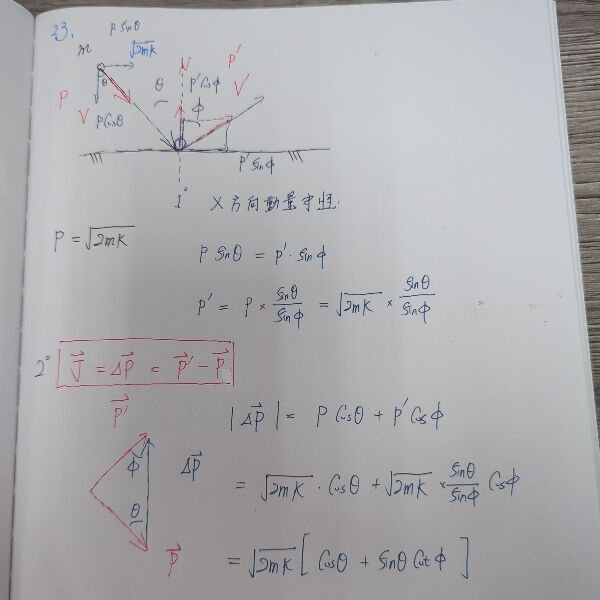 23.
p sinθ
m √2mK
θ
N
p'
p'cosϕ
V'
p
V
pcosθ
θ
ϕ
p' sinϕ
1° X方向動量守恆.
p = √2mK
p sinθ = p'·sinϕ
p' = p × sinθ/sinϕ = √2mK × sinθ/sinϕ
2° J⃗ = Δp⃗ = p⃗' − p⃗
p⃗'
|Δp⃗| = p cosθ + p'cosϕ
ϕ
Δp⃗
= √2mK · cosθ + √2mK × sinθ/sinϕ cosϕ
θ
p⃗
= √2mK [ cosθ + sinθ cotϕ ]